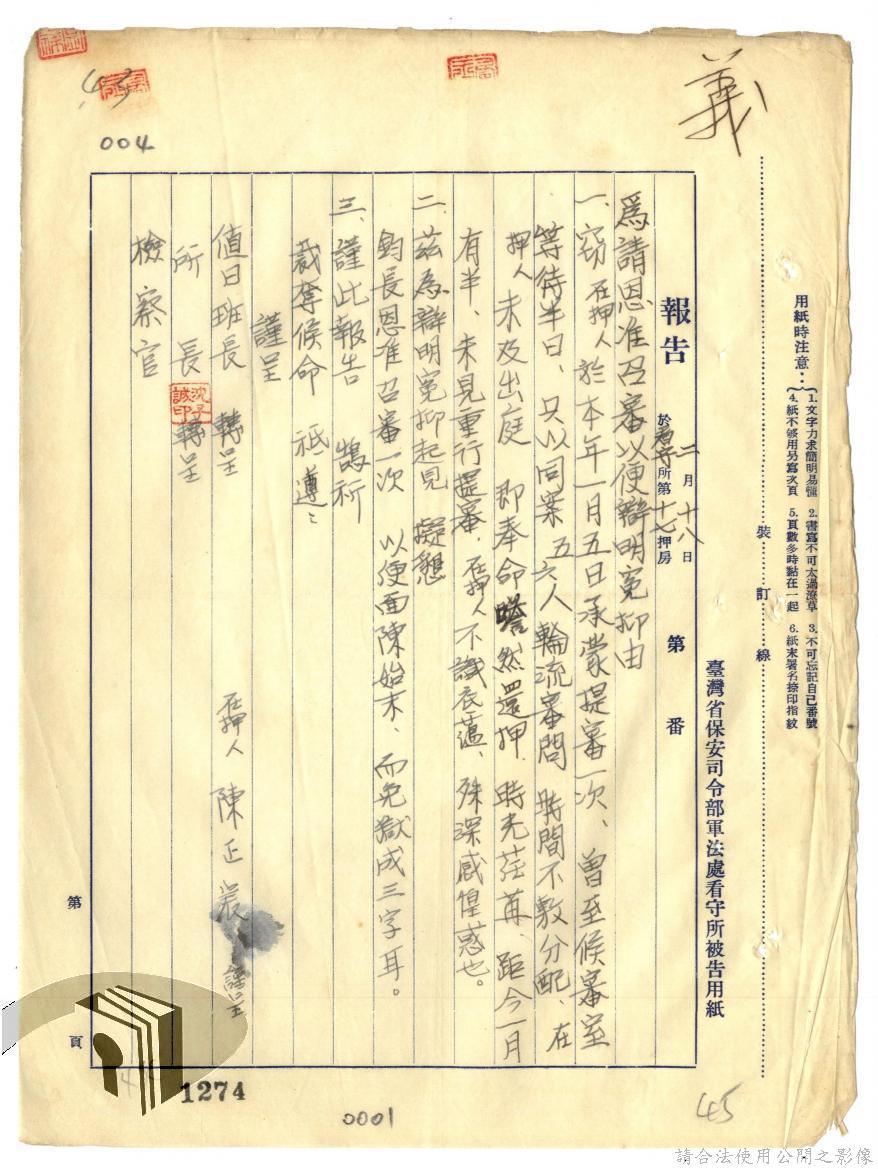 義
43
004
用紙時注意：
1. 文字力求簡明易懂 2. 書寫不可太過潦草 3. 不可忘記自己番號
4. 紙不够用另寫次頁 5. 頁數多時黏在一起 6. 紙末署名捺印指紋
裝訂線
臺灣省保安司令部軍法處看守所被告用紙
報告 二月十八日 於看守所第十七押房 第 番
為請恩准召審以便辯明冤抑由
一、竊在押人於本年一月五日承蒙提審一次、曾至候審室
等待半日、只以同案五六人輪流審問 時間不敷分配、在
押人未及出庭 即奉命嗒然還押 時光荏苒、距今一月
有半、未見重行提審、在押人不識衣蘊、殊深感惶惑也。
二、茲為辯明冤抑起見 擬懇
鈞長恩准召審一次 以便面陳始末、而免獄成三字耳。
三、謹此報告 鵠祈
裁奪候命 祗遵
謹呈
值日班長 轉呈
所長 轉呈
檢察官
在押人 陳正宸 謹呈
第 頁
1274
0001
45
請合法使用公開之影像